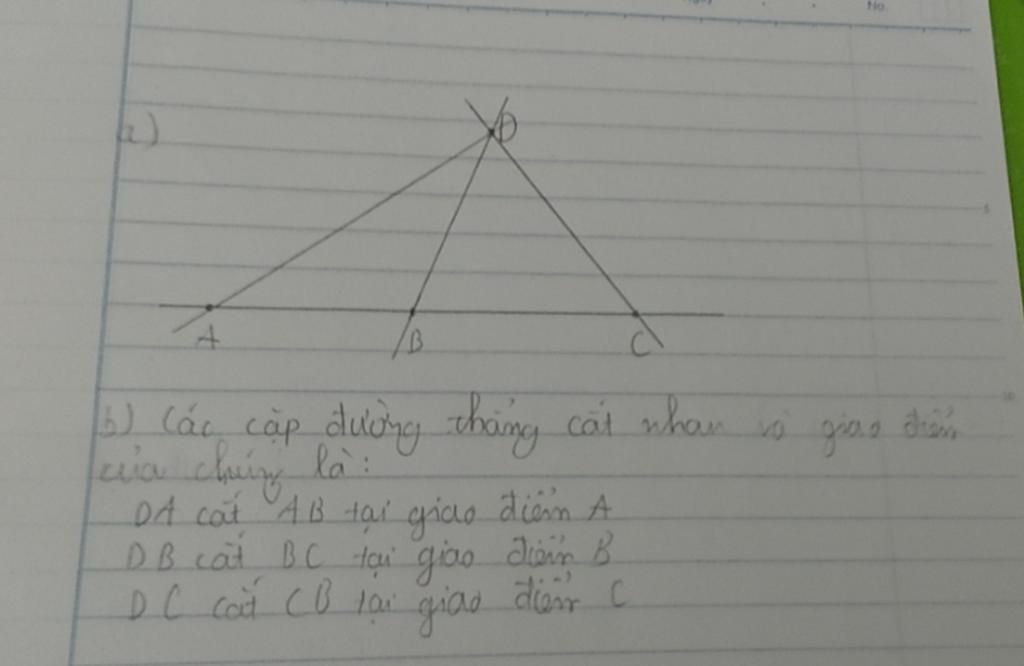 No.
a)
D
A B C
b) Các cặp đường thẳng cắt nhau và giao điểm
của chúng là:
DA cắt AB tại giao điểm A
DB cắt BC tại giao điểm B
DC cắt CB tại giao điểm C
5
10